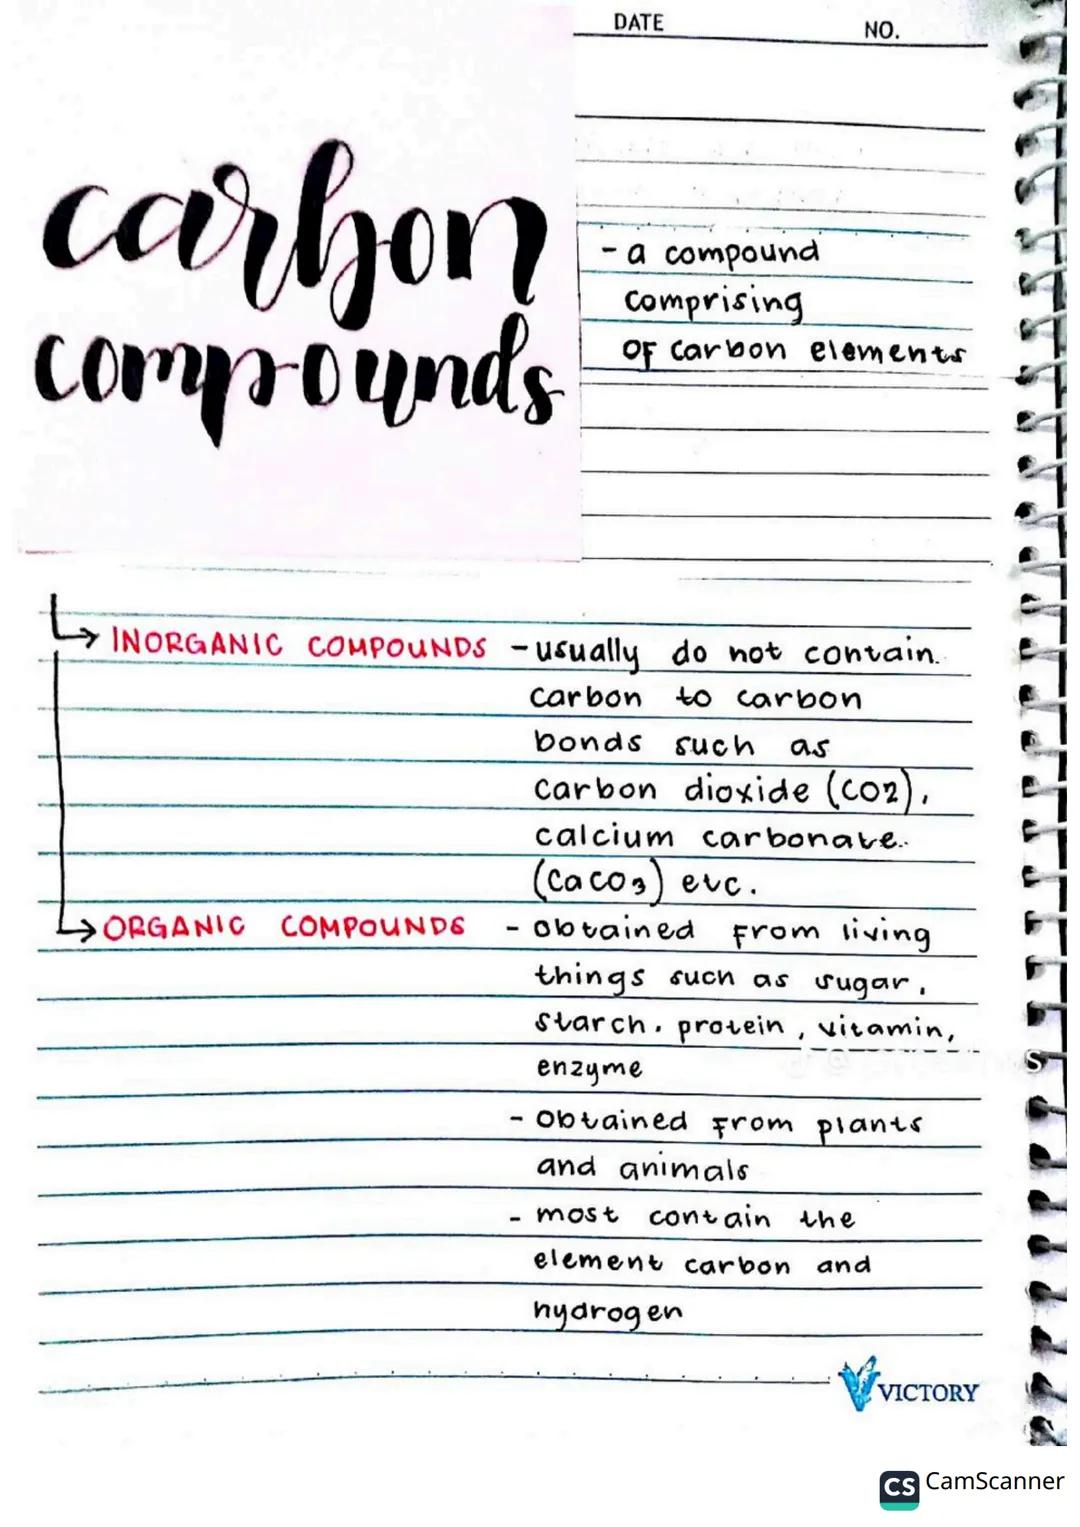 DATE
NO.
carbon
compounds
- a compound
comprising
of carbon elements
INORGANIC COMPOUNDS - usually do not contain
carbon to carbon
bonds such as
carbon dioxide (CO2),
calcium carbonate
(CaCO3) etc.
ORGANIC COMPOUNDS - obtained from living
things such as sugar,
starch, protein, vitamin,
enzyme
- obtained from plants
and animals
- most contain the
element carbon and
hydrogen
VICTORY
CS CamScanner